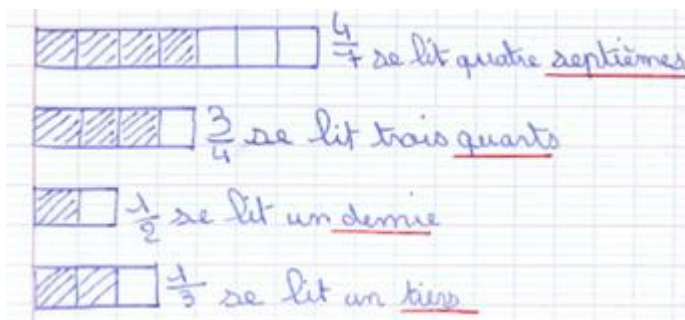 4/7 se lit quatre septièmes
3/4 se lit trois quarts
1/2 se lit un demie
1/3 se lit un tiers